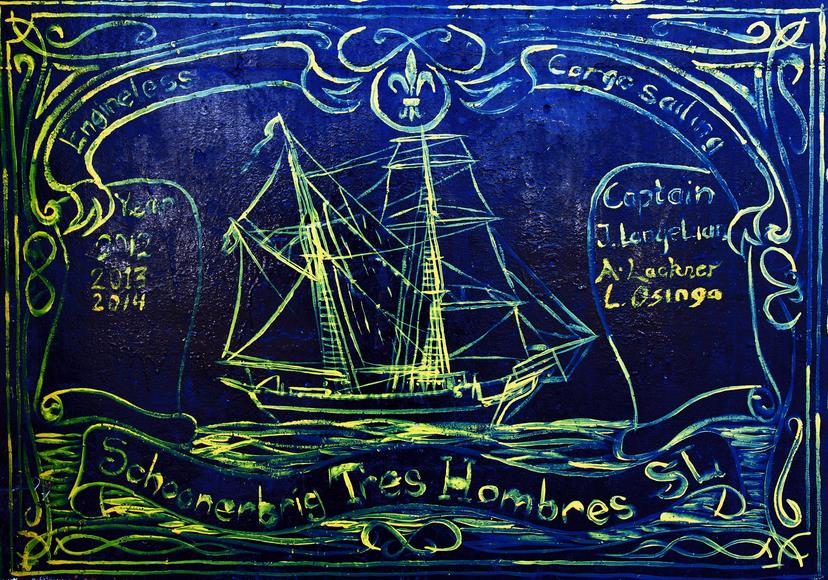 Engineless
Cargo Sailing
Year
2012
2013
2014
Captain
A. Lackner
L. Osinga
Schoonerbrig Tres Hombres SL